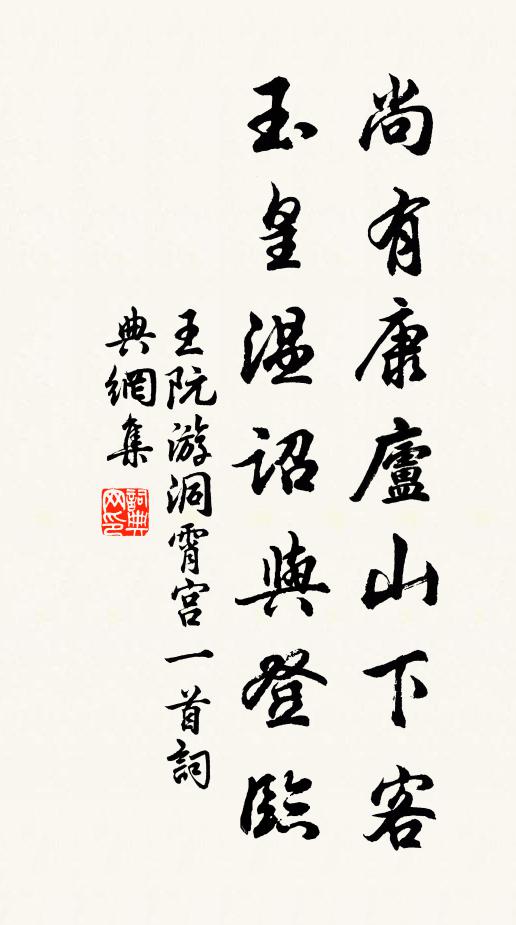 尚有康廬山下客
玉皇温詔與登臨
王阮游洞霄宫一首詞
典網集
詞典网印